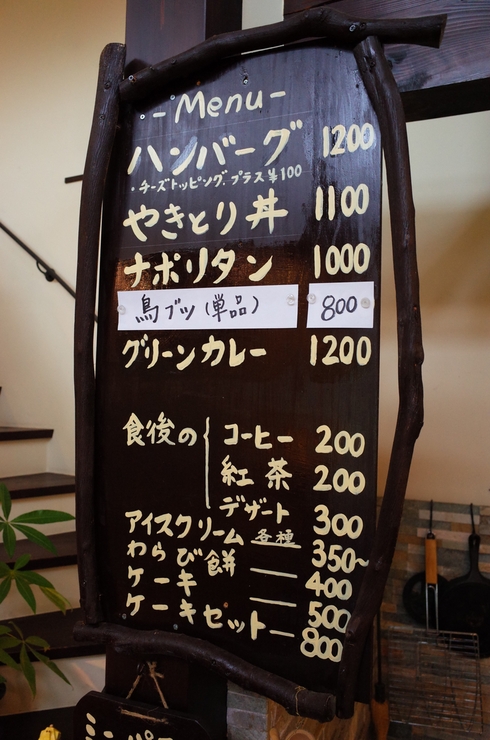 -Menu-
ハンバーグ 1200
・チーズトッピング、プラス¥100
やきとり丼 1100
ナポリタン 1000
鳥ブツ(単品) 800
グリーンカレー 1200
食後の{コーヒー 200
紅茶 200
デザート 300
アイスクリーム 各種 350~
わらび餅 — 400
ケーキ — 500
ケーキセット — 800